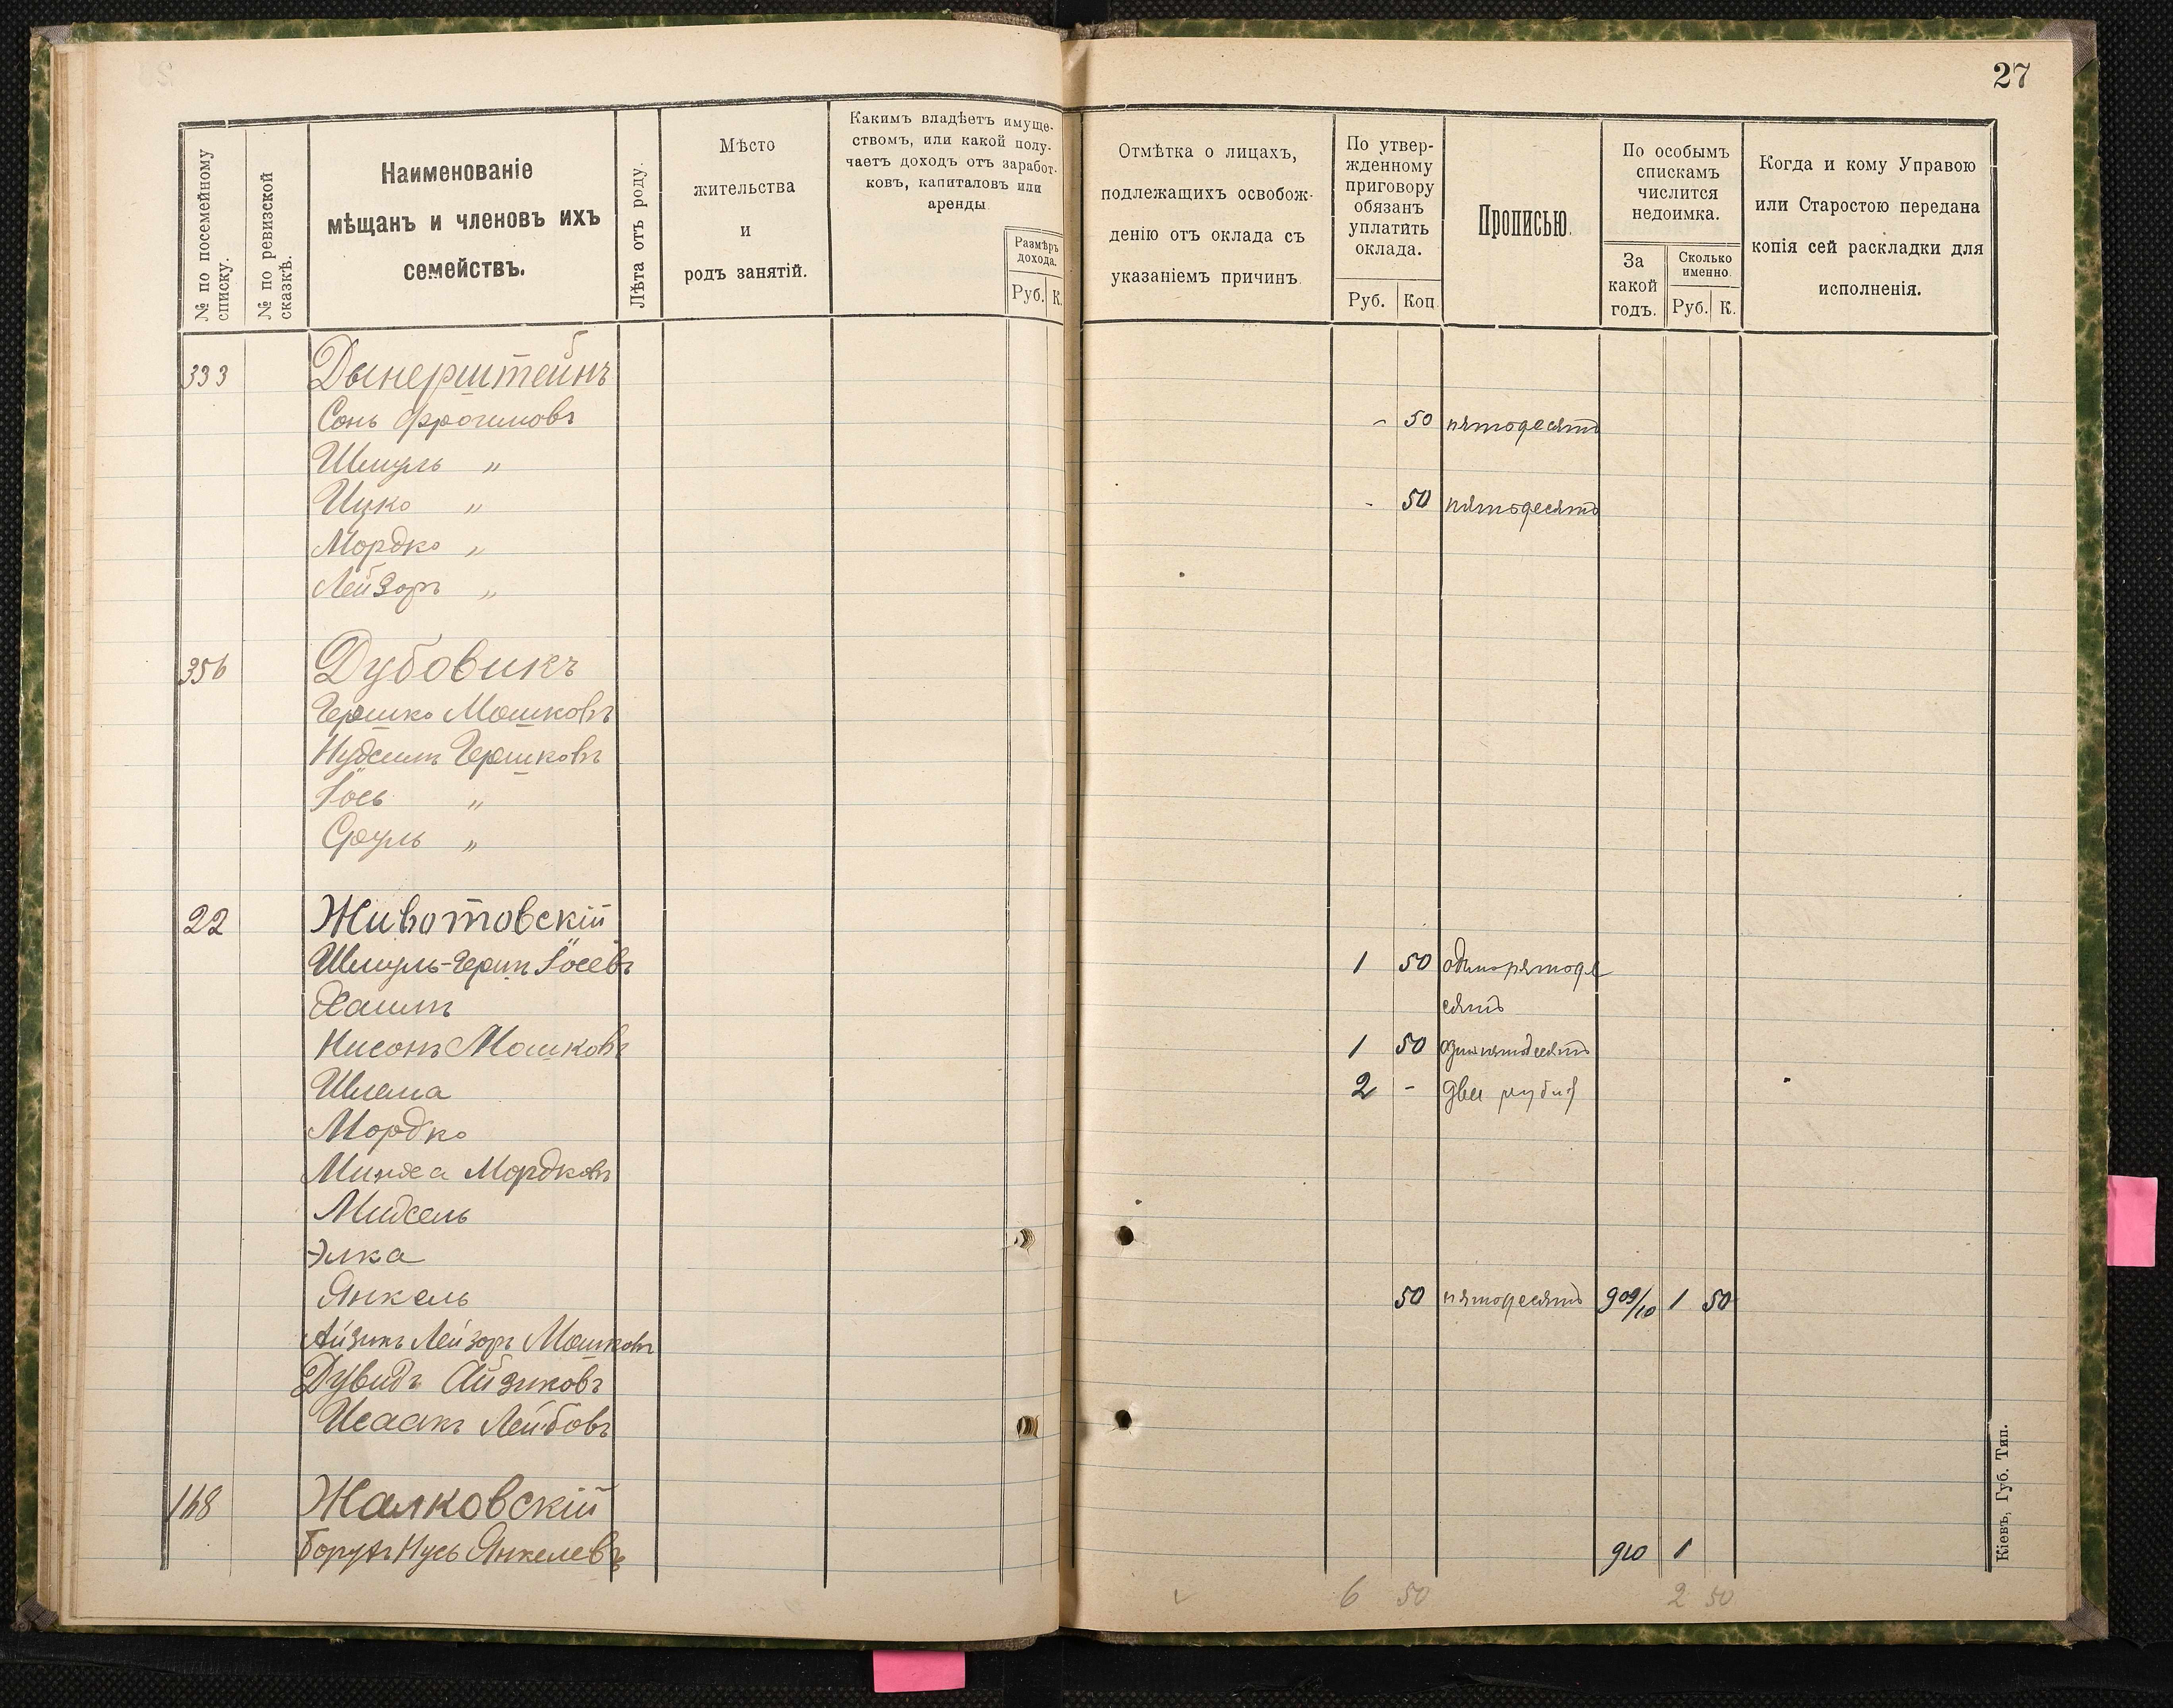 27
№ по посемейному списку.
№ по ревизской сказкѣ.
Наименованіе
мѣщанъ и членовъ ихъ
семействъ.
Лѣта отъ роду.
Мѣсто
жительства
и
родъ занятій.
Какимъ владѣетъ имуще-
ствомъ, или какой полу-
чаетъ доходъ отъ заработ-
ковъ, капиталовъ или
аренды
Размѣръ
дохода.
Руб. К.
Отмѣтка о лицахъ,
подлежащихъ освобож-
денію отъ оклада съ
указаніемъ причинъ
По утвер-
жденному
приговору
обязанъ
уплатить
оклада.
Руб. Коп.
Прописью.
По особымъ
спискамъ
числится
недоимка.
За
какой
годъ.
Сколько
именно.
Руб. К.
Когда и кому Управою
или Старостою передана
копія сей раскладки для
исполненія.
333 Дынерштейнъ
Сонь Фроимовъ - 50 пятодесятъ
Шмуль "
Ицко " - 50 пятодесятъ
Мордко "
Лейзоръ "
356 Дубовикъ
Гершко Мошковъ
Нухимъ Гершковъ
Іось "
Сруль "
22 Животовскій
Шмуль-Герш Іосевъ 1 50 одинпятоде
Хаимъ сятъ
Нисонъ Мошковъ 1 50 одинпятодесятъ
Шлема 2 - два рубл
Мордко
Мордковъ
Михель
Элка
Янкель 50 пятодесятъ 909/10 1 50
Айзикъ Лейзоръ Мошковъ
Дувидъ Айзиковъ
Исаакъ Лейбовъ
168 Жалковскій
Борухъ Нусь Янкелевъ 910 1
6 50 2 50
Кіевъ, Губ. Тип.